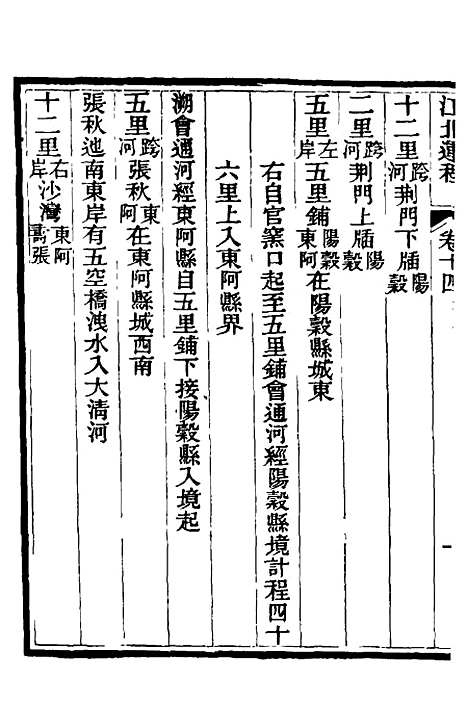 江北運程 卷十四
十二里跨河荆門下牐陽穀
二里跨河荆門上牐陽穀
五里左岸五里鋪陽穀東阿在陽穀縣城東
右自官窰口起至五里鋪會通河經陽穀縣境計程四十
六里上入東阿縣界
溯會通河經東阿縣自五里鋪下接陽穀縣入境起
五里跨河張秋東阿在東阿縣城西南
張秋迤南東岸有五空橋洩水入大清河
十二里右岸沙灣東阿壽張